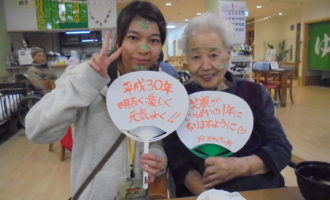 平成30年
明るく楽しく
元気よく!!
笑顔が
いっぱいの1年に
なりますように♡
ゆ